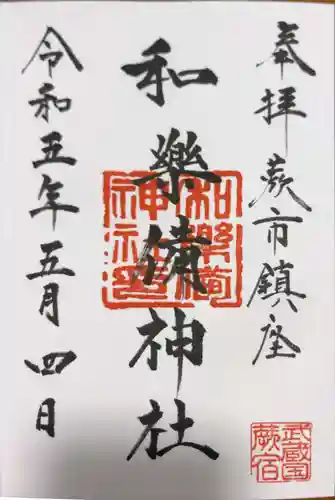 奉拝 蕨市鎮座
和樂備神社
和樂備
神社
令和五年五月四日
武蔵国
蕨宿